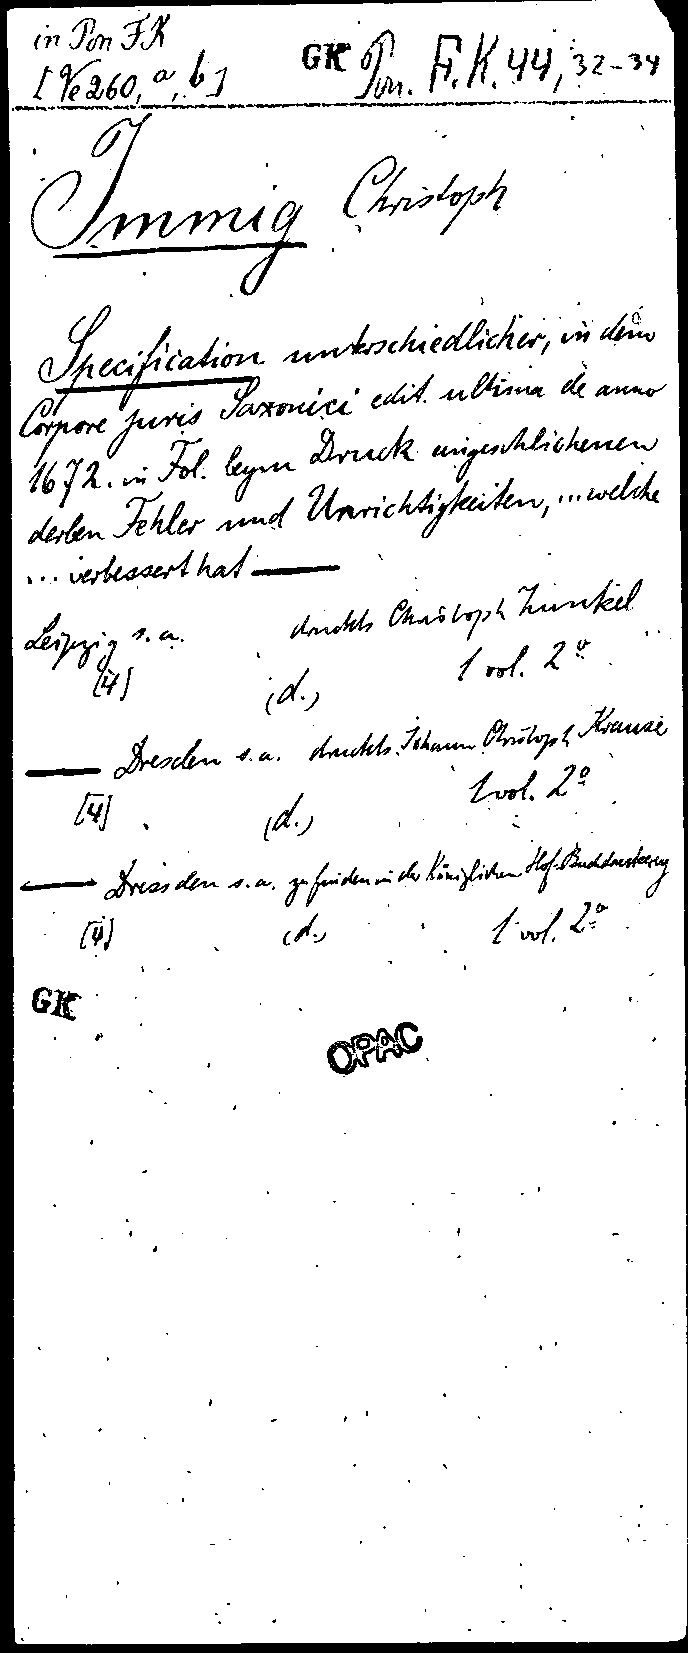 in Pon FK
[Ve 260, a, b]
GK Pon. F.K. 44, 32-34
Immig Christoph
Specification unterschiedlicher, in dem
Corpore juris Saxonici edit. ultima de anno
1672. in Fol. beym Druck eingeschlichenen
derben Fehler und Unrichtigkeiten, ... welche
... verbessert hat —
Leipzig s. a. druckts Christoph Zunkel
[4] (d.) 1 vol. 2°
— Dresden s. a. druckts Johann Christoph Krause
[4] (d.) 1 vol. 2°
— Dressden s. a. zu finden in der Königlichen Hof-Buchdruckerey
[4] (d.) 1 vol. 2°
GK
OPAC